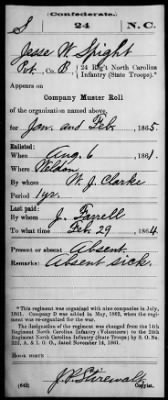 Confederate.
S 24 N.C.
Jesse W. Spight
Pvt., Co. B, 24 Reg't North Carolina
Infantry (State Troops).*
Appears on
Company Muster Roll
of the organization named above,
for Jan. and Feb., 1865
Enlisted:
When Aug. 6, 1861.
Where Weldon
By whom W. J. Clarke
Period 1 yr.
Last paid:
By whom J. Farrell
To what time Feb. 29, 1864
Present or absent Absent
Remarks: Absent sick.
*This regiment was organized with nine companies in July,
1861. Company D was added in May, 1862, when the regi-
ment was re-organized for the war.
The designation of the regiment was changed from the 14th
Regiment North Carolina Infantry (Volunteers) to the 24th
Regiment North Carolina Infantry (State Troops) by S. O. No.
222, A. & I. G. O., dated November 14, 1861.
Book mark:
J. P. Stirewalt
(642) Copyist.